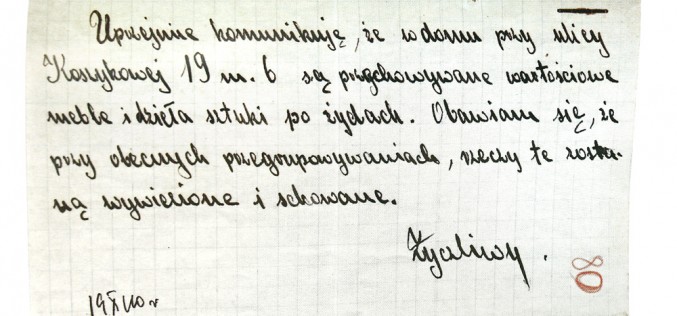 Uprzejmie komunikuję, że w domu przy ulicy
Koszykowej 19 m. 6 są przechowywane wartościowe
meble i dzieła sztuki po żydach. Obawiam się, że
przy obecnych przegrupowywaniach, rzeczy te zosta-
ną wywiezione i schowane.
Życzliwy.
80
19 XI 40 r